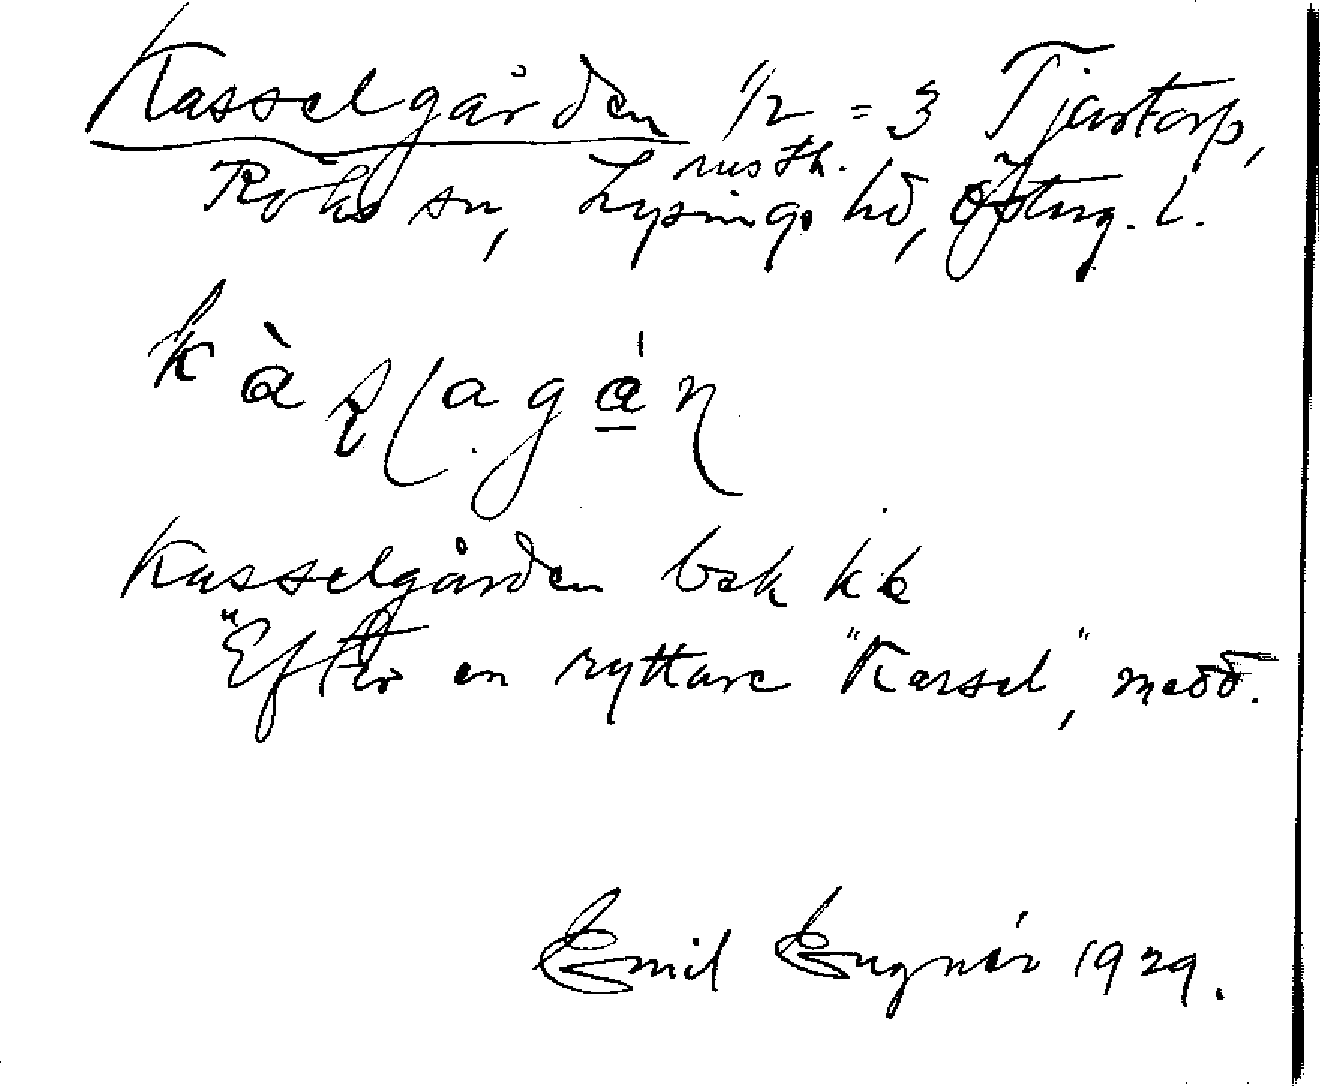 Kasselgården 1/2 = 3 Tjartorp,
rusth.
Röks sn, Lysings hd, Österg. l.
Kasselgården bek kk
"Efter en ryttare "Kassel", medd.
Emil Eugnér 1929.